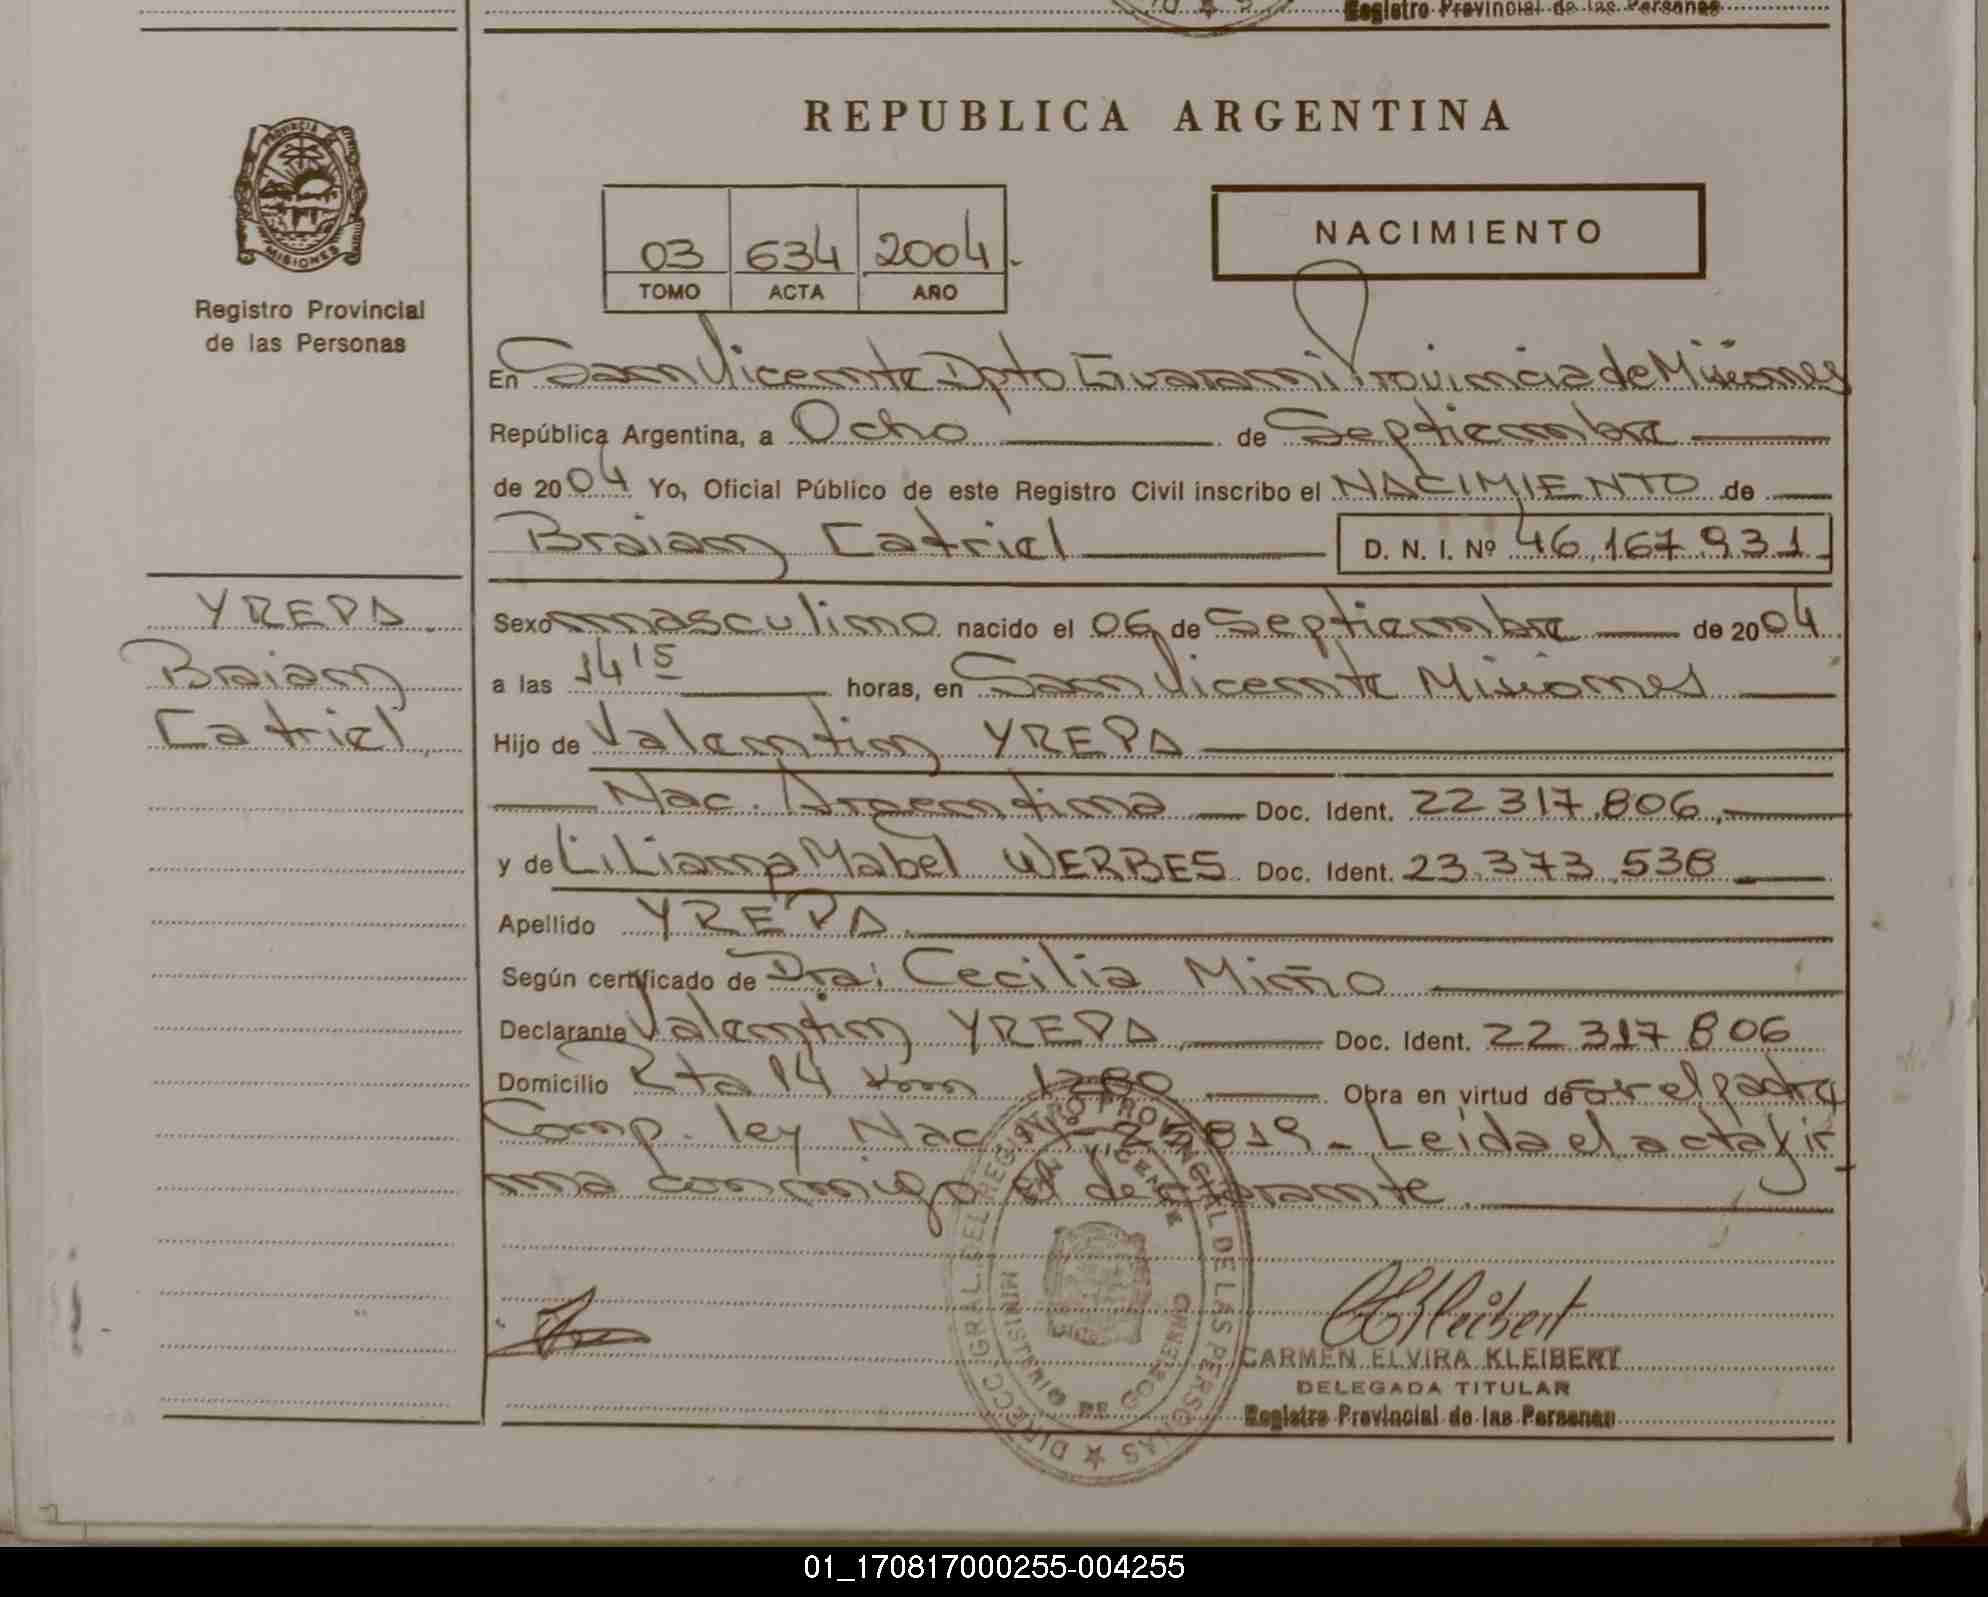 Registro Provincial de las Personas
PROVINCIA DE
MISIONES
Registro Provincial
de las Personas
REPUBLICA ARGENTINA
03 634 2004.
TOMO ACTA AÑO
NACIMIENTO
En San Vicente Dpto Guarani Provincia de Misiones
República Argentina, a Ocho de Septiembre
de 2004 Yo, Oficial Público de este Registro Civil inscribo el NACIMIENTO de
Braian Catriel D. N. I. Nº 46.167.931
YREPA
Braian
Catriel
Sexo masculino nacido el 06 de Septiembre de 2004
a las 14 15 horas, en San Vicente Misiones
Hijo de Valentin YREPA
Nac. Argentina Doc. Ident. 22 317.806
y de Liliana Mabel WERBES Doc. Ident. 23.373.538
Apellido YREPA
Según certificado de Dra: Cecilia Miño
Declarante Valentin YREPA Doc. Ident. 22 317 806
Domicilio Rta 14 Km 1280 Obra en virtud de Ser el padre
Comp. ley Nac Nº 25819 - Leida el acta fir
ma conmigo el declarante
DIRECC. GRAL. DEL REGISTRO PROVINCIAL DE LAS PERSONAS
SAN VICENTE
MINISTERIO DE GOBIERNO
CKleibert
CARMEN ELVIRA KLEIBERT
DELEGADA TITULAR
Registro Provincial de las Personas
01_170817000255-004255